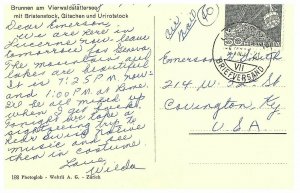 Brunnen am Vierwaldstättersee
mit Bristenstock, Gitschen und Urirotstock
Dear Emerson,
We are here in
Lucerne now, leave
tomorrow for Geneva.
The mountains and
lakes are beautiful
It is 7:25 P.M. now
and 1:00 P.M. at home.
I'll be all mixed up
when I get back
tonight for a
sightseeing trip to
hear Swiss native
music and see
them in costume.
Love,
Wilda
Air
Mail
60
VII
BRIEFVERSAND
Emerson
214 W.
Covington Ky
U.S.A.
Photoglob - Wehrli A. G. - Zürich